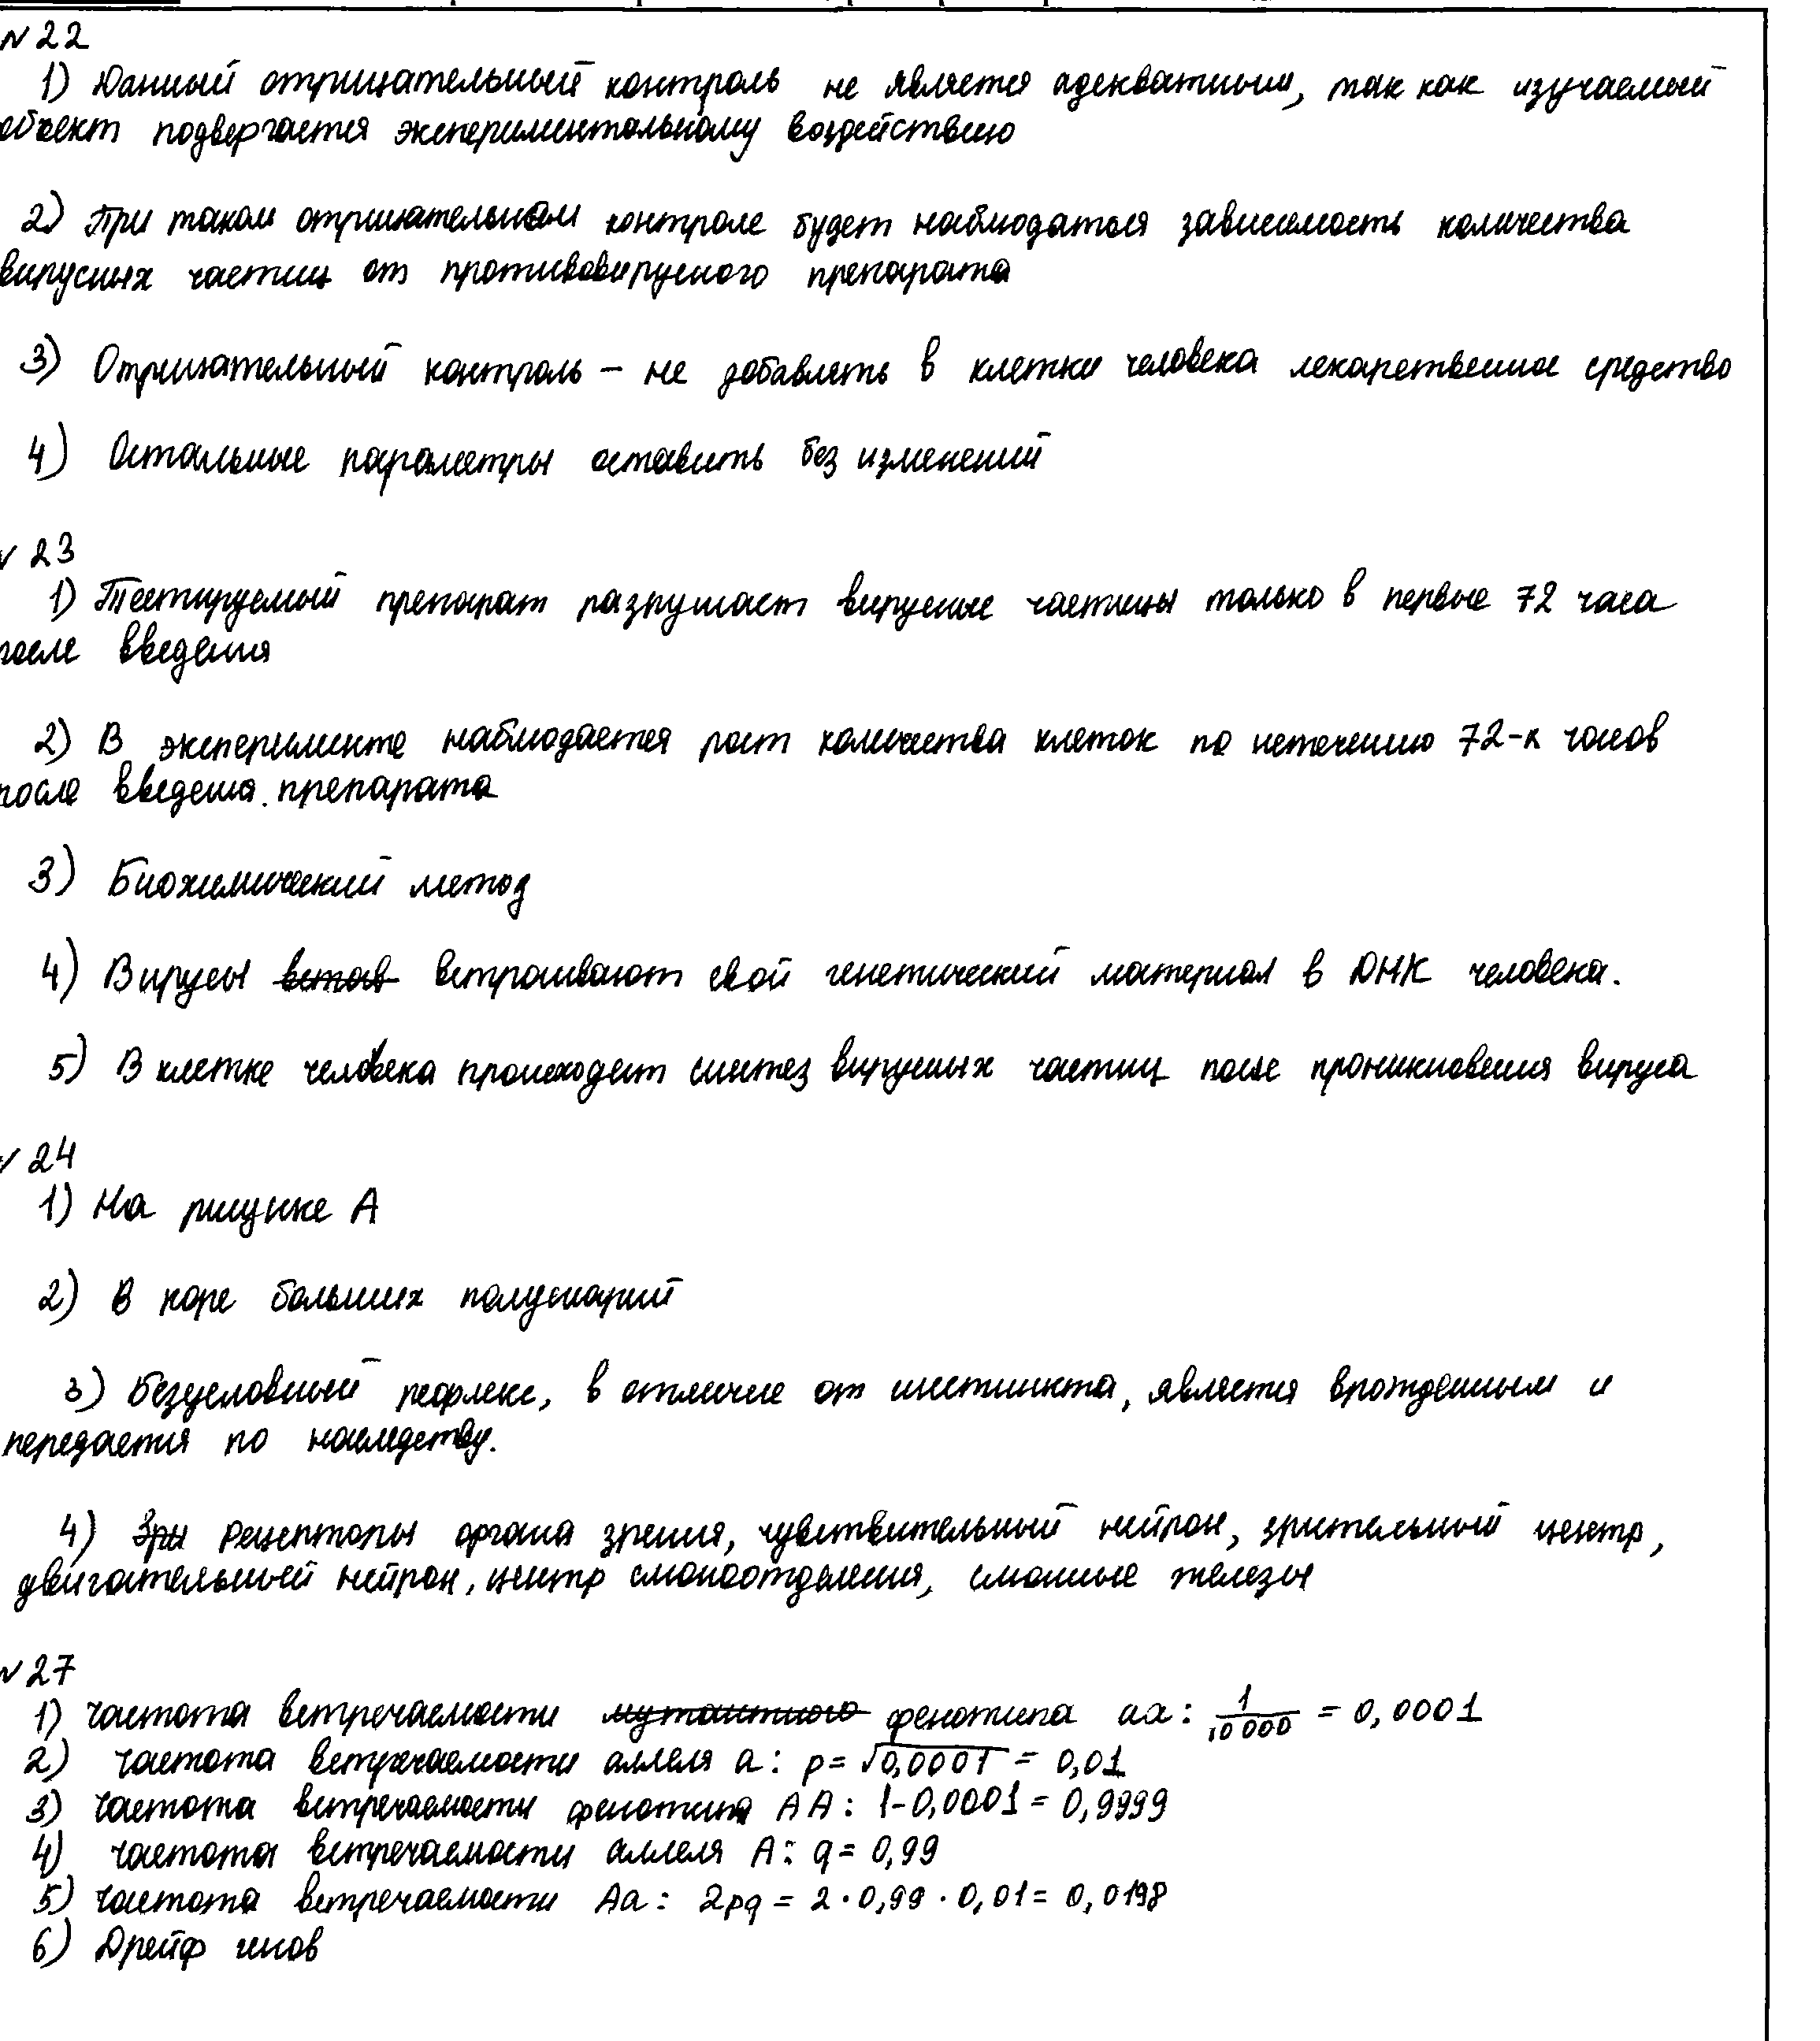 №22
1) Данный отрицательный контроль не является адекватным, так как изучаемый
объект подвергается экспериментальному воздействию
2) При таком отрицательном контроле будет наблюдаться зависимость количества
вирусных частиц от противовирусного препарата
3) Отрицательный контроль – не добавлять в клетки человека лекарственное средство
4) Остальные параметры оставить без изменений
№23
1) Тестируемый препарат разрушает вирусные частицы только в первые 72 часа
после введения
2) В эксперименте наблюдается рост количества клеток по истечению 72-х часов
после введения препарата
3) Биохимический метод
4) Вирусы встав встраивают свой генетический материал в ДНК человека.
5) В клетке человека происходит синтез вирусных частиц после проникновения вируса
№24
1) На рисунке А
2) В коре больших полушарий
3) Безусловный рефлекс, в отличие от инстинкта, является врожденным и
передается по наследству.
4) Зры Рецепторы органа зрения, чувствительный нейрон, зрительный центр,
двигательный нейрон, центр слюноотделения, слюнные железы
№27
1) Частота встречаемости мутантного фенотипа aa: 1/10 000 = 0,0001
2) Частота встречаемости аллеля a: p= √0,0001 = 0,01
3) Частота встречаемости фенотипа AA: 1-0,0001 = 0,9999
4) Частота встречаемости аллеля A: q = 0,99
5) Частота встречаемости Aa: 2pq = 2 · 0,99 · 0,01 = 0,0198
6) Дрейф генов